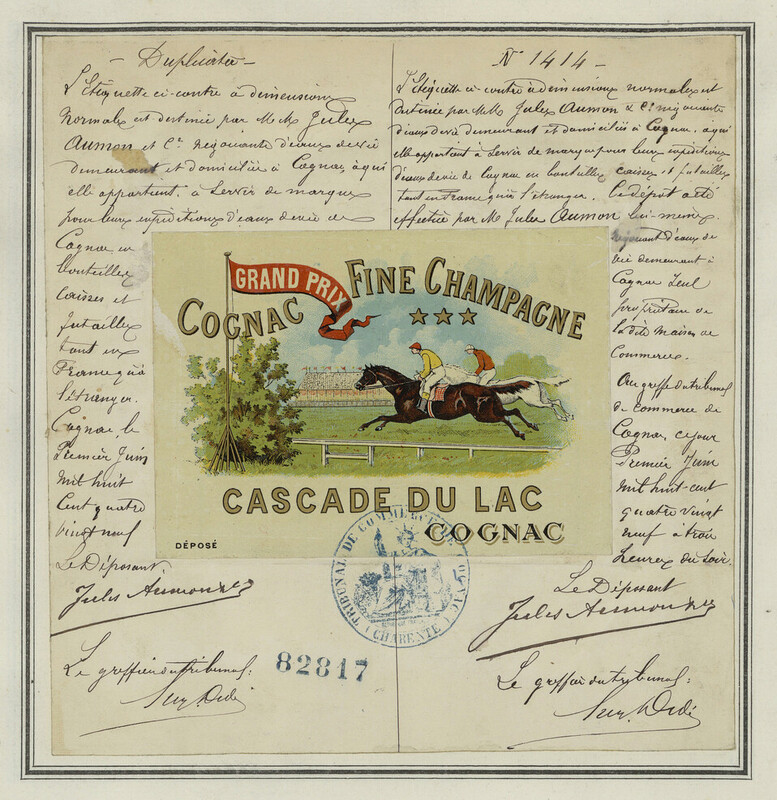 — Duplicata —
L'Etiquette ci-contre à dimensions
normales est destinée par M M. Jules
Aumon et Cie. négociants d'eaux de vie
demeurant et domiciliés à Cognac, à qui
elle appartient. à servir de marque
pour leurs expéditions d'eaux de vie de
Cognac en
bouteilles
caisses et
futailles
tant en
France qu'à
l'étranger.
Cognac, le
Premier Juin
mil huit
cent quatre
vingt neuf
Le Déposant.
Jules Aumon & Cie
Le greffier du tribunal:
N° 1414 —
L'Etiquette ci-contre à dimensions normales est
destinée par M M. Jules Aumon & Cie. négociants
d'eaux de vie demeurant et domiciliés à Cognac. à qui
elle appartient à servir de marque pour leurs expéditions
d'eaux de vie de Cognac en bouteilles caisses et futailles
tant en France qu'à l'étranger. Ce dépôt a été
effectué par M Jules Aumon lui-même.
négociant d'eaux de
vie demeurant à
Cognac seul
propriétaire de
la dite maison de
Commerce.
Au greffe du tribunal
de commerce de
Cognac, ce jour
Premier Juin
mil huit cent
quatre vingt
neuf à trois
heures du soir.
Le Déposant
Jules Aumon & Cie
Le greffier du tribunal:
GRAND PRIX
COGNAC FINE CHAMPAGNE
CASCADE DU LAC
COGNAC
DÉPOSÉ
TRIBUNAL DE COMMERCE DE COGNAC
(CHARENTE)
82817